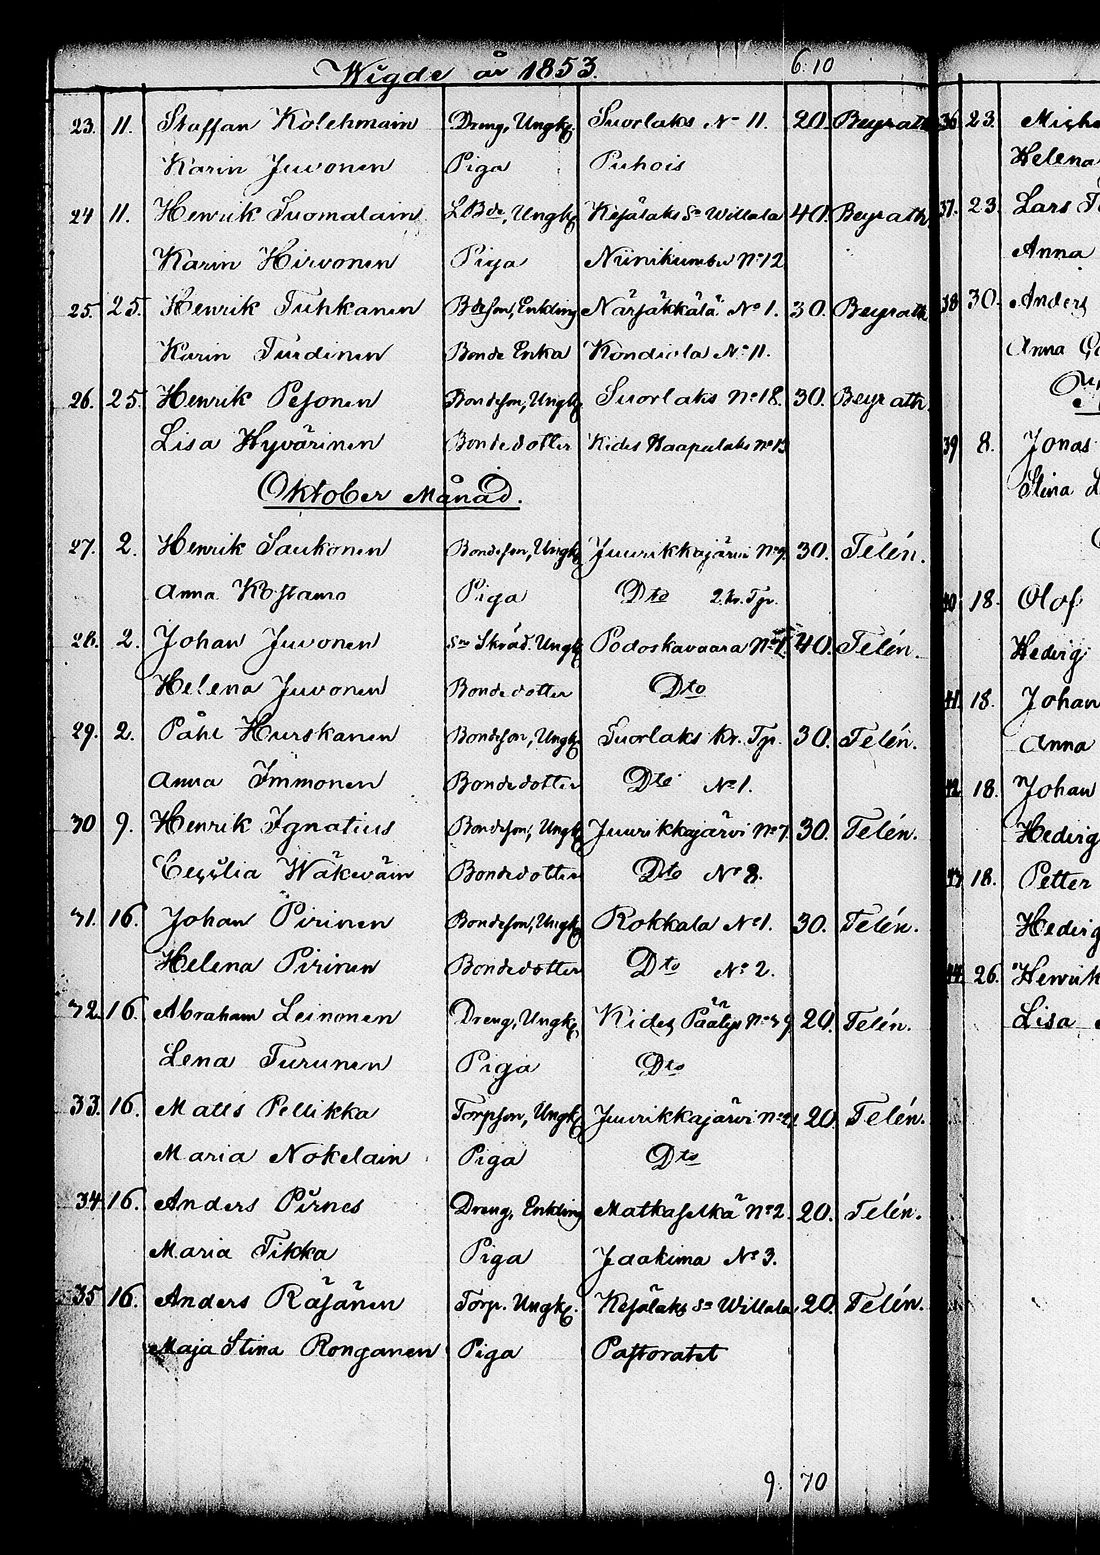 Wigde år 1853. 6. 10
23. 11. Staffan Kolehmain Dreng, Ungk. Suorlaks No 11. 20. Beyrath
Karin Juvonen Piga Puhois
24 11. Henrik Suomalain LBde, Ungk. Kesälaks Sn Willala 40. Beyrath.
Karin Hirvonen Piga Niinikumbu No 12
25. 25. Henrik Tuhkanen Bdeson, Enkling Närsäkkälä No 1. 30. Beyrath
Karin Turdinen Bonde Enka Kondiola No 11.
26. 25. Henrik Pesonen Bondeson, Ungk. Suorlaks No 18. 30. Beyrath.
Lisa Hyvärinen Bondedotter Kides Haapalaks No 13
Oktober Månad.
27. 2. Henrik Saukonen Bondeson, Ungk. Juurikkajärvi No 7. 30. Telén.
Anna Kostamo Piga Dto 2. kr. Tp.
28. 2. Johan Juvonen Sn Skräd. Ungk. Podoskavaara No 1. 40. Telén.
Helena Juvonen Bondedotter Dto
29. 2. Påhl Hurskanen Bondeson, Ungk. Suorlaks kr. Tp. 30. Telén.
Anna Immonen Bondedotter Dto No 1.
30 9. Henrik Ignatius Bondeson, Ungk. Juurikkajärvi No 7. 30. Telén.
Cecilia Wäkeväin Bondedotter Dto No 8.
31. 16. Johan Pirinen Bondeson, Ungk. Rokkala No 1. 30. Telén.
Helena Pirinen Bondedotter Dto No 2.
32. 16. Abraham Leinonen Dreng, Ungk. Kides Päätye No 39 20. Telén.
Lena Turunen Piga Dto
33. 16. Matts Pellikka Torpson, Ungk. Juurikkajärvi 20 Telén.
Maria Nokelain Piga Dto
34 16. Anders Pirnes Dreng, Enkling Matkaselkä No 2. 20. Telén.
Maria Tikka Piga Jaakima No 3.
35 16. Anders Räsänen Torp. Ungk. Kesälaks Sn Willala 20. Telén.
Maja Stina Ronganen Piga Pastoratet
9. 70
36 23. Mich
Helena
37. 23. Lars
Anna
38 30. Anders
Anna
39 8. Jonas
Stina
40 18. Olof
Hedvig
41. 18. Johan
Anna
42 18. Johan
Hedvig
43 18. Petter
Hedvig
44 26. Henrik
Lisa